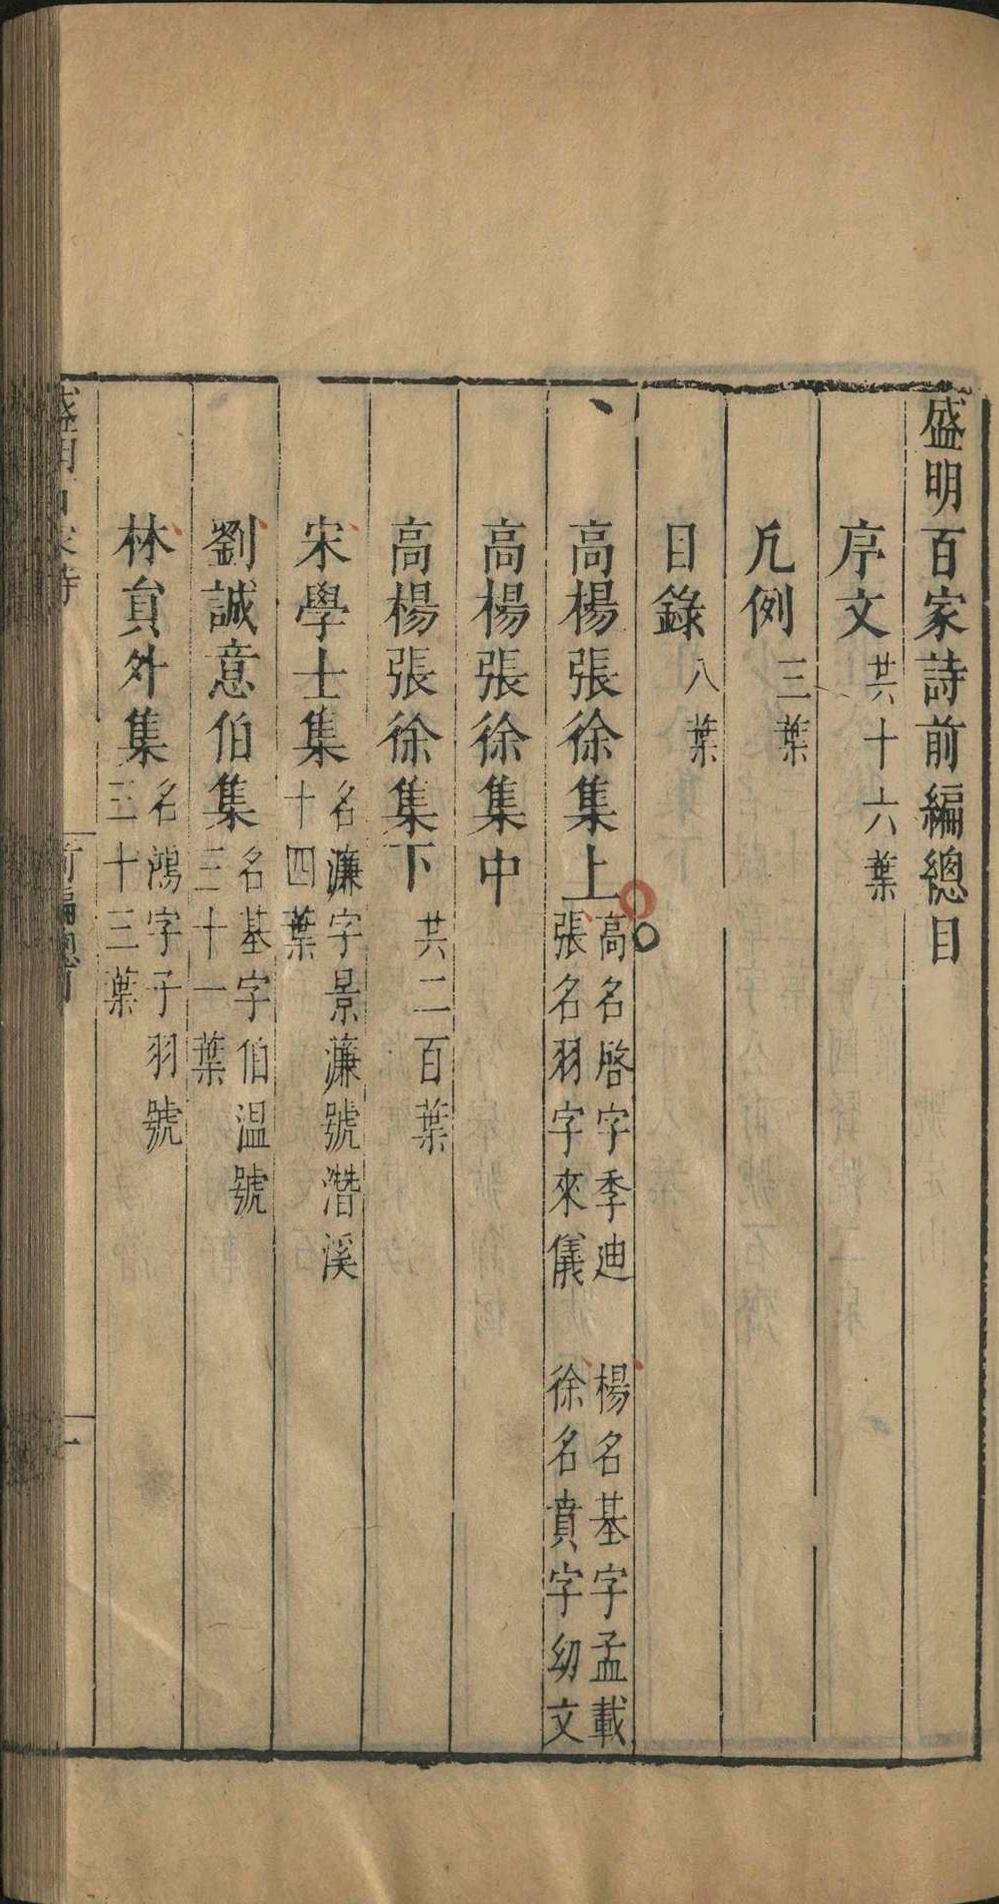 盛明百家詩前編總目
序文 共十六葉
凡例 三葉
目錄 八葉
高楊張徐集上 高名啓字季迪 楊名基字孟載
張名羽字來儀 徐名賁字幼文
高楊張徐集中
高楊張徐集下 共二百葉
宋學士集 名濂字景濂號潛溪
十四葉
劉誠意伯集 名基字伯温號
三十一葉
林貟外集 名鴻字子羽號
三十三葉